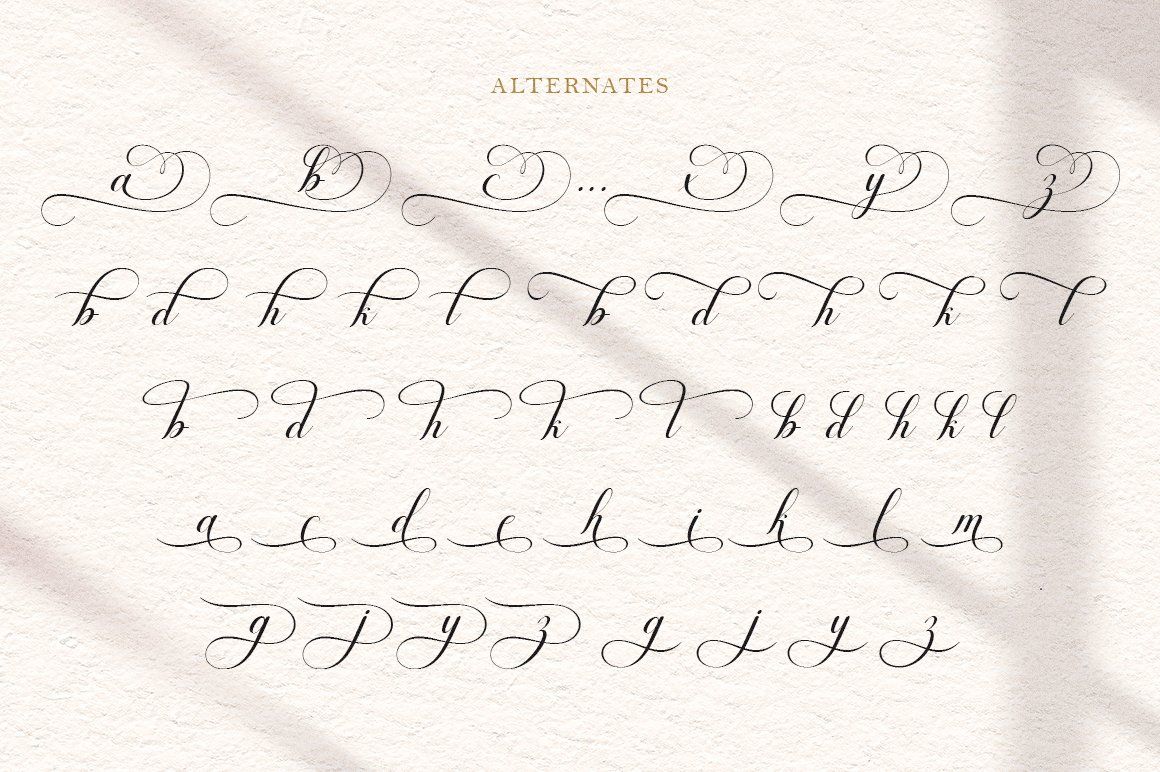 ALTERNATES
a b c ... y z
b d h k l b d h k l
b d h k l b d h k l
a c d e h i k l m
g j y z g j y z